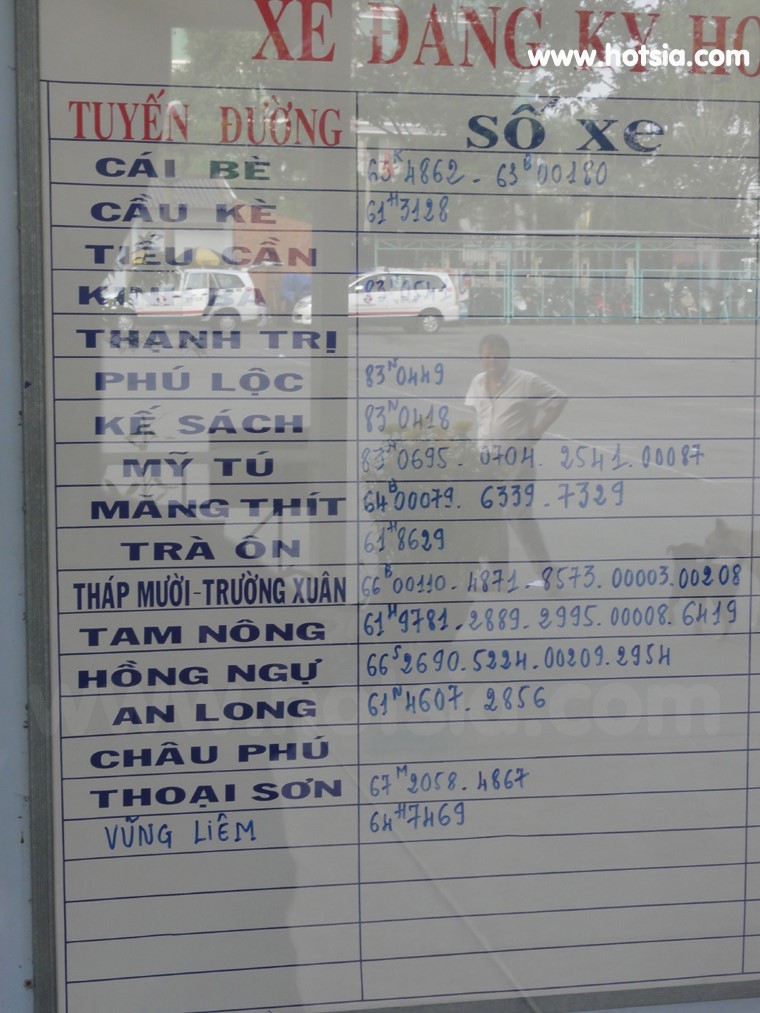 XE ĐĂNG KÝ HO
www.hotsia.com
TUYẾN ĐƯỜNG SỐ XE
CÁI BÈ 63K4862 - 63B00180
CẦU KÈ 61H3128
TIỂU CẦN
83N
THẠNH TRỊ
PHÚ LỘC 83N0449
KẾ SÁCH 83N0418
MỸ TÚ 83N0695 - 0704. 2541. 00087
MĂNG THÍT 64B00079. 6339. 7329
TRÀ ÔN 61H8629
THÁP MƯỜI-TRƯỜNG XUÂN 66B00110. 4871. 8573. 00003. 00208
TAM NÔNG 61H9781. 2889. 2995. 00008. 6419
HỒNG NGỰ 66S2690. 5224. 00209. 2954
AN LONG 61N4607. 2856
www.hotsia.com
CHÂU PHÚ
THOẠI SƠN 67M2058. 4867
VŨNG LIÊM 64H7469